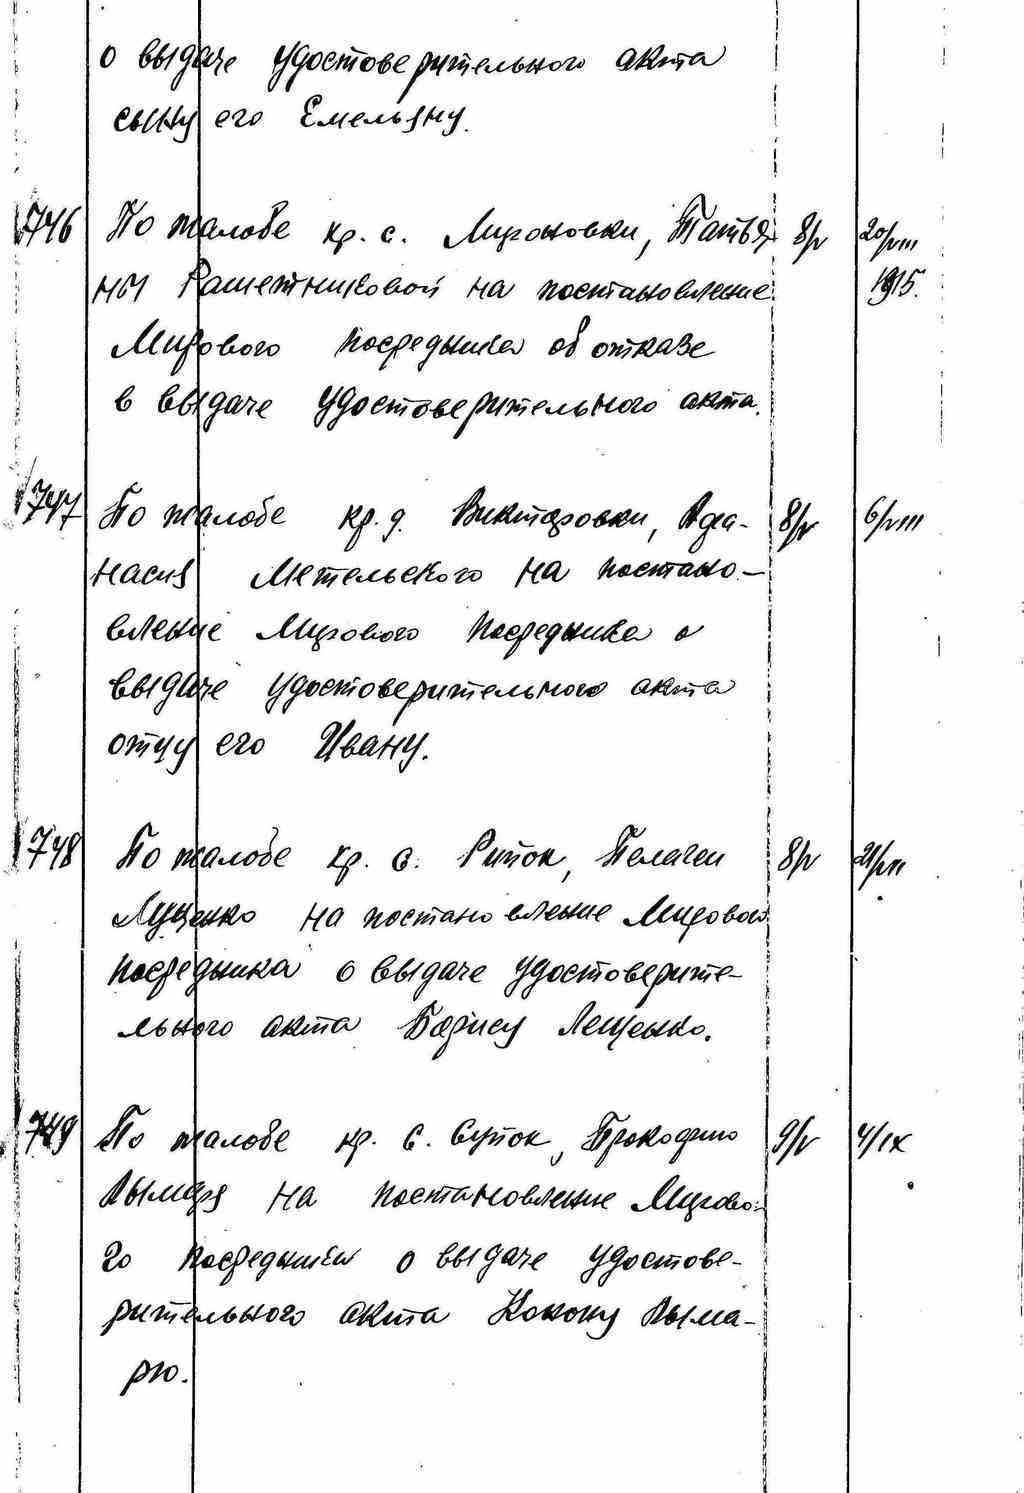 о выдаче удостоверительного акта
сыну его Емельяну.
746 По жалобе кр. с. Мироновки, Татья 8/v 20/viii
ны Рашетниковой на постановление 1915.
Мирового Посредника об отказе
в выдаче удостоверительного акта.
747 По жалобе кр. д. Викторовки, Афа- 8/v 6/viii
насия Метельского на постано-
вление Мирового Посредника о
выдаче удостоверительного акта
отцу его Ивану.
748 По жалобе кр. с. Рипок, Пелагеи 8/v
Луценко на постановление Мирового
Посредника о выдаче удостоверите-
льного акта Борису Лещенко.
749 По жалобе кр. с. Прокофию 9/v 4/ix
Лымаря на постановление Мирово-
го Посредника о выдаче удостове-
рительного акта Конону Лыма-
рю.